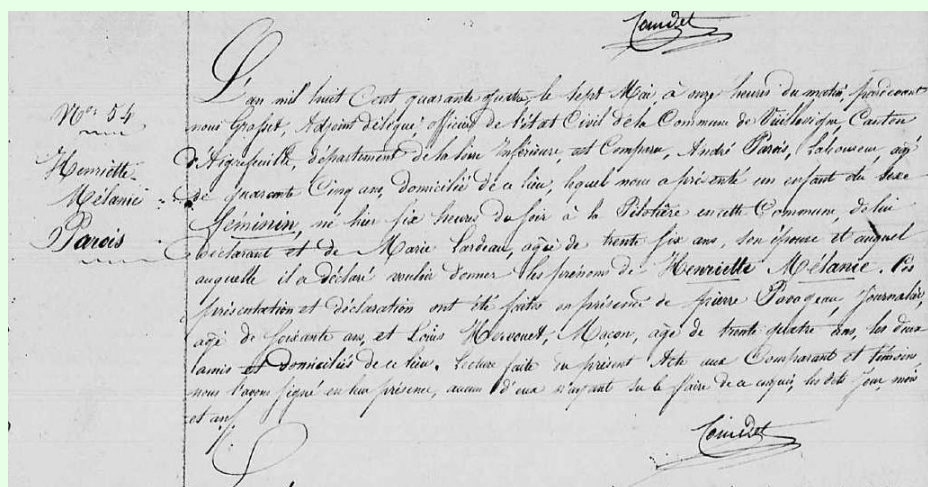 N.º 54
Henriette
Mélanie
Parois
L'an mil huit Cent quarante quatre, le Sept Mai, à onze heures du matin, pardevant
nous Grasset, Adjoint délégué, officier de l'état Civil de la Commune de Vieillevigne, Canton
d'Aigrefeuille, département de la loire Inférieure, est Comparu, André Parois, Laboureur, agé
de quarante Cinq ans, domicilié de ce lieu, lequel nous a présenté un enfant du Sexe
Féminin, né hier six heures du soir à la Pilotière en cette Commune, de lui
déclarant et de Marie Lardeau, agée de trente six ans, son épouse et auquel
auquelle il a déclaré vouloir donner les prénoms de Henriette Mélanie. Ces
présentation et déclaration ont été faites en présence de pierre Parogeau, Journalier,
agé de Soixante ans, et Louis Hervouet, Macon, agé de trente quatre ans, les deux
amis et Domiciliés de ce lieu. Lecture faite du présent Acte aux Comparant et témoins
nous l'avons Signé en leur présence, aucun d'eux n'ayant su le faire de ce enquis, les dits Jour, mois
et an